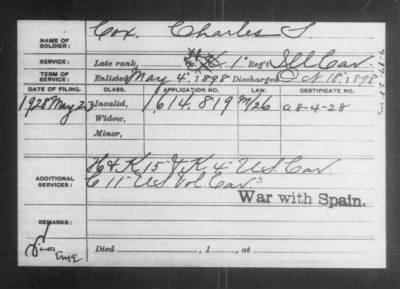 NAME OF SOLDIER: Cox, Charles S.
SERVICE: Late rank, 1" Reg't Ill Cav.
TERM OF SERVICE: Enlisted May 4, 1898 Discharged O 18, 1898
DATE OF FILING. CLASS. APPLICATION NO. LAW. CERTIFICATE NO.
1928 May 23 Invalid, 1614,819 m/26 a 8-4-28
Widow,
Minor,
ADDITIONAL SERVICES: H & K 15 & K 4 U.S. Cav
C 11" U.S. Vol. Cav
War with Spain.
REMARKS:
Died , 1 , at